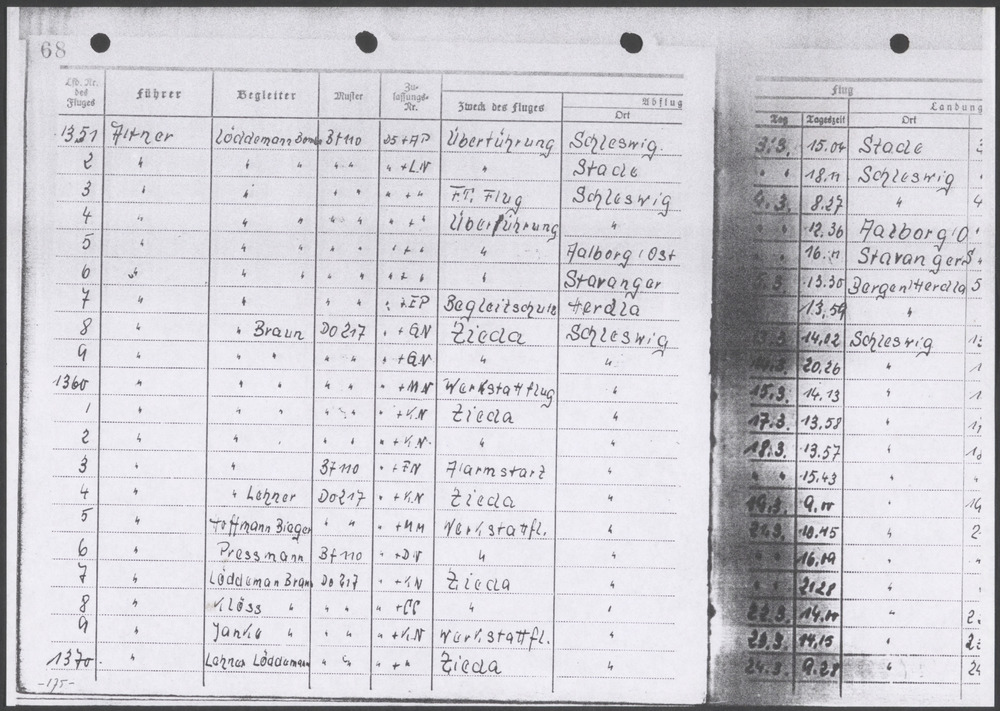 68
Lfd. Nr. des Fluges Führer Begleiter Muster Zulassungs-Nr. Zweck des Fluges Abflug Ort
Flug
Tag Tageszeit Landung Ort
1351 Altner Löddemann Bf 110 DS+AP Überführung Schleswig. 3.3. 15.04 Stade
2 " " " " " " +LN " Stade " " 18.11 Schleswig
3 " " " " " + " F.T. Flug Schleswig 4.3. 8.27 " 4
4 " " " " " " + " Überführung " " " 12.36 Aalborg / O
5 " " " " " " + " " Aalborg / Ost " " 16.11 Stavanger
6 " " " " " " + " " Stavanger 5.3. 13.30 Bergen/Herdla 5
7 " " " " " +EP Begleitschutz Herdla 13.59 "
8 " " Braun Do 217 " +GN Zieda Schleswig 14.02 Schleswig
9 " " " " " +GN " " 20.26 "
1360 " " " " " " +MN Werkstattflug " 15.3. 14.13 "
1 " " " " " " +KN Zieda " 17.3. 13.58 "
2 " " " " " " +KN " " 18.3. 13.57 "
3 " " Bf 110 " +FN Alarmstart " " " 15.43 "
4 " " Lehner Do 217 " +KN Zieda " 19.3. "
5 " Hoffmann " " " +MM Werkstattfl. " 10.45 " 2
6 " Pressmann Bf 110 " +DN " " " " 16.19 "
7 " Löddeman Braun Do 217 " +KN Zieda " " " 21.28 "
8 " Klöss " " " " +CC " " 22.3. "
9 " Janke " " " " +KN Werkstattfl. " 23.3. 14.15 "
1370 " Lehner Löddemann " " " + " Zieda " 24.3. 9.28 " 24
-175-